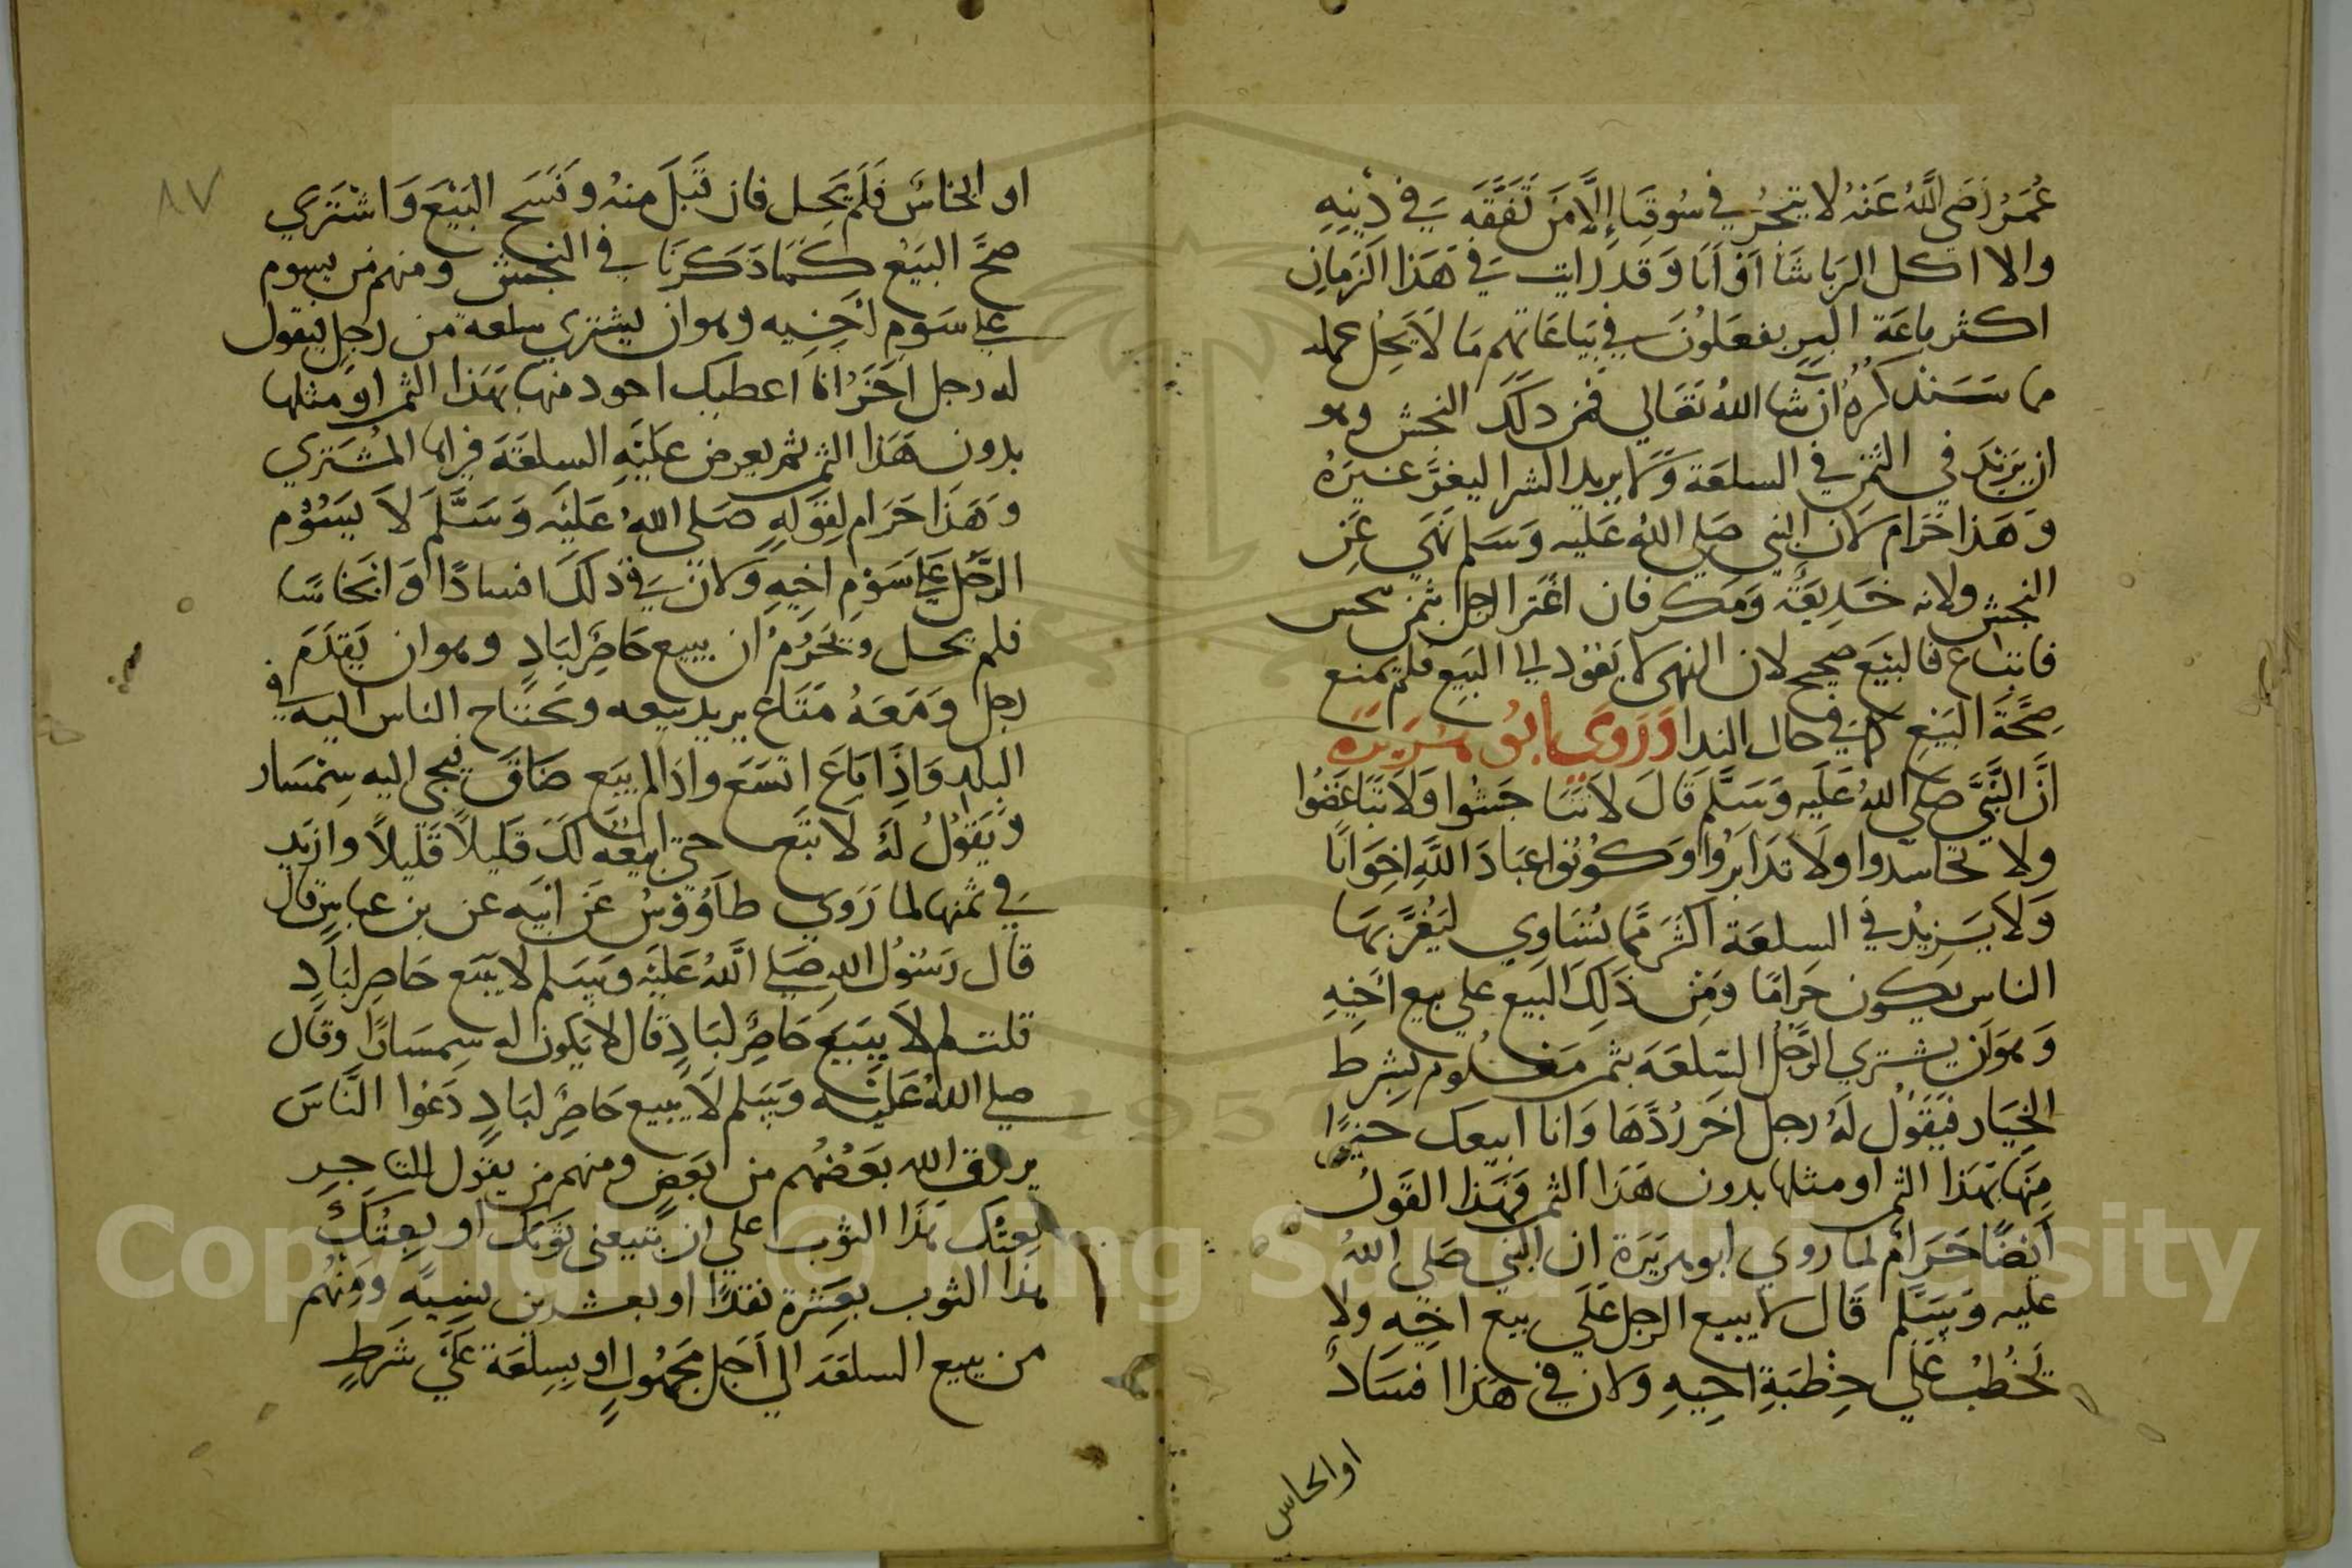 عُمَرُ رَضَي اللَّهُ عَنهُ لا يتجُر في سُوقِنا إِلَّا مَن تَفَقَّهَ في دِينِهِ
والا اكل الرِبا شَاَ اَوْ اَبَا وَقد رايت في هَذا الزَمان
اكثر باعَة البر يفعَلُونَ في بيَاعَاتهم مَا لَا يَحِل عمله
مما سَنذكرهُ ان شا اللهُ تعَالي فمن ذلكَ النجش وهو
ان يَزِيْدَ في الثمن في السلعَة وَلا يريد الشرا ليغرَّ غيرَهُ
وَهَذا حَرام لان النبي صَلي اللهُ عَليه وَسَلم نهَي عَن
النجش ولانه خَدِيعَة وَمَكر فان اغتر الرجل بثمن بخس
فابتاع فالبَيْع صحيح لان النهى لا يَعُود الي البَيع فلم يمنع
صِحَّةَ البَيْعِ كما في حال الندا وَرَوي ابُو هُرَيرَة
اَنَّ النَّبيَّ صَلي اللهُ عَلَيه وَسَلَّم قَالَ لاَ تَنَاجَشُوا وَلاَ تبَاغَضُوا
ولا تحاسدوا ولاَ تدَابَرُوا وَكُونُوا عبَادَ اللَّهِ اخِوَانًا
وَلاَ يَزِيْد في السلعَة اكثرَ مما تُسَاوي ليَغُرَّ بهَا
الناس يكون حَرامًا وَمِن ذَلِكَ البَيع علي بيع اَخِيْهِ
وَهوَ اَن يشتري الرَّجُل السّلعَة بثمن مَعْلُوم بِشرط
الخيَار فَيَقوُل لَهُ رجل اخَر رُدَّهَا وَانا ابيعك خيرًا
مِنهَا بَهذا الثمن او مثلها بدون هَذا الثمن فهَذا القَولُ
اَيْضًا حَرَامٌ لما روي ابو هريَرَة ان النبي صَلي اللهُ
عليه وَسَلَّم قَال لا يبيع الرجل عَلَي بيع اخِيهِ ولا
يَخْطُبْ عَلَي خِطْبَةِ اخِيهِ ولان في هَذا افسَادً
او انخاس
٨٧
او انخاسً فَلَم يَحِل فان قَبلَ منهُ وفَسَخ البَيْعَ وَاشتَري
صَحَّ البَيْعُ كَمَا ذَكَرنَا في النجش ومنهم من يسوم
علي سَومِ اَخِيه وهو ان يشتري سلعة من رجل فيقول
له رجل اَخَرُ انا اعطيك اجود منها بهَذا الثمن او مثلها
بدون هَذا الثمن ثم يعرض عَليَهِ السلعَةَ فيراها المُشتَري
وَهَذَا حَرَام لِقوَلِهِ صَلي اللهُ عَليَه وَسَلَّمَ لاَ يَسُوْم
الرَّجل عَلَي سَوْم اَخِيهِ وَلان في ذلكَ افسادًا وَانخَاسًا
فلم يحل ويَحْرُمُ ان يبيع حَاضِرٌ لبَادٍ وهو ان يَقدَمَ
رجل وَمَعَهُ مَتَاع يريد بيعه ويَحتَاج الناس اليه في
البلد وَاِذَا بَاعَ اتسَعَ واذا لم يبَع ضَاقَ فيجي اليه سِمْسَار
وَيَقوُلُ لَهُ لاَ تَبَع حتي ابيعَهُ لكَ قليلاً قَليلاً وازيد
في ثمنها لما رَوَي طَاوُوسُ عَن ابيَهِ عن بن عباسٍ قال
قال رَسُولُ الله صَلي اللَّهُ عَليَه وَسَلم لا يبَع حَاضِر لبَادٍ
قلت لم لاَ يبِيَع حَاضِرٌ لبَادٍ قال لا يكون له سِمسَارًا وقال
صلي اللهُ عَليَه وَسَلم لاَ يبيع حَاضِرٌ لبَادٍ دَعُوا النَّاسَ
يرزق الله بَعَضُهم من بَعَضٍ ومنهم من يقول للتاجر
بعتك هَذَا الثوب علي ان تبيعني ثوبَك او بِعتُكَ
هذا الثوب بعشرة نقدًا او بعشرين بنسِيَّهِ وَمِنهُم
من يبيع السلعَةَ الي اَجَل مَجْهُولٍ او بِسِلعَة عَلَي شَرطٍ
Copyright © King Saud University
1957